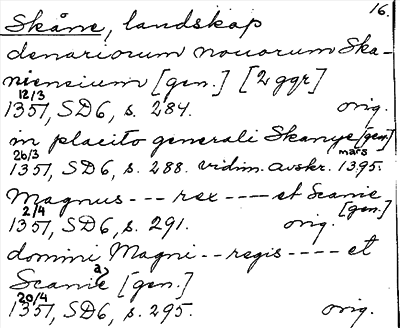 16.
Skåne, landskap
denariorum nouorum Ska-
niensium [gen.] [2 ggr]
12/3
1351, SD6, s. 284. orig.
in placito generali Skanye [gen.]
26/3 mars
1351, SD6, s. 288. vidim. avskr. 1395.
Magnus --- rex ---- et Scanie
2/4 [gen.]
1351, SD6, s. 291. orig.
domini Magni -- regis ---- et
Scanie [gen.]
20/4
1351, SD6, s. 295. orig.